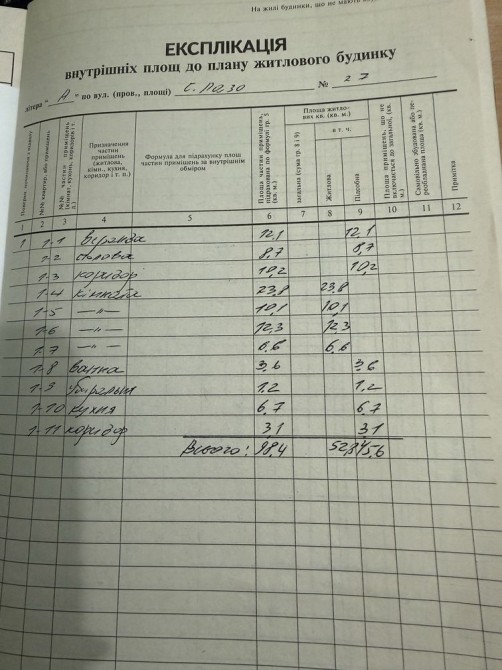 На жилі будинки, що не мають
ЕКСПЛІКАЦІЯ
внутрішніх площ до плану житлового будинку
літера " А " по вул. (пров., площі) С. Лазо № 27
Призначення частин приміщень (житлова, кімн., кухня, коридор і т. п.)
Формула для підрахунку площ частин приміщень за внутрішнім обміром
Площа частин приміщень, підрахована по формулі гр. 5 (кв. м.)
Площа житлових кв. (кв. м.)
загальна (сума гр. 8 і 9)
в т. ч.
Житлова
Підсобна
Площа приміщень, що не включається до загальної, (кв. м.)
Самовільно збудована або переобладнана площа (кв. м.)
Примітка
1 2 3 4 5 6 7 8 9 10 11 12
1 1-1 Веранда 12,1 12,1
1-2 столова 8,7 8,7
1-3 коридор 10,2 10,2
1-4 кімната 23,8 23,8
1-5 —"— 10,1 10,1
1-6 —"— 12,3 12,3
1-7 —"— 6,6 6,6
1-8 Ванна 3,6 3,6
1-9 Убиральня 1,2 1,2
1-10 кухня 6,7 6,7
1-11 коридор 3,1 3,1
Всього: 98,4 52,8 45,6